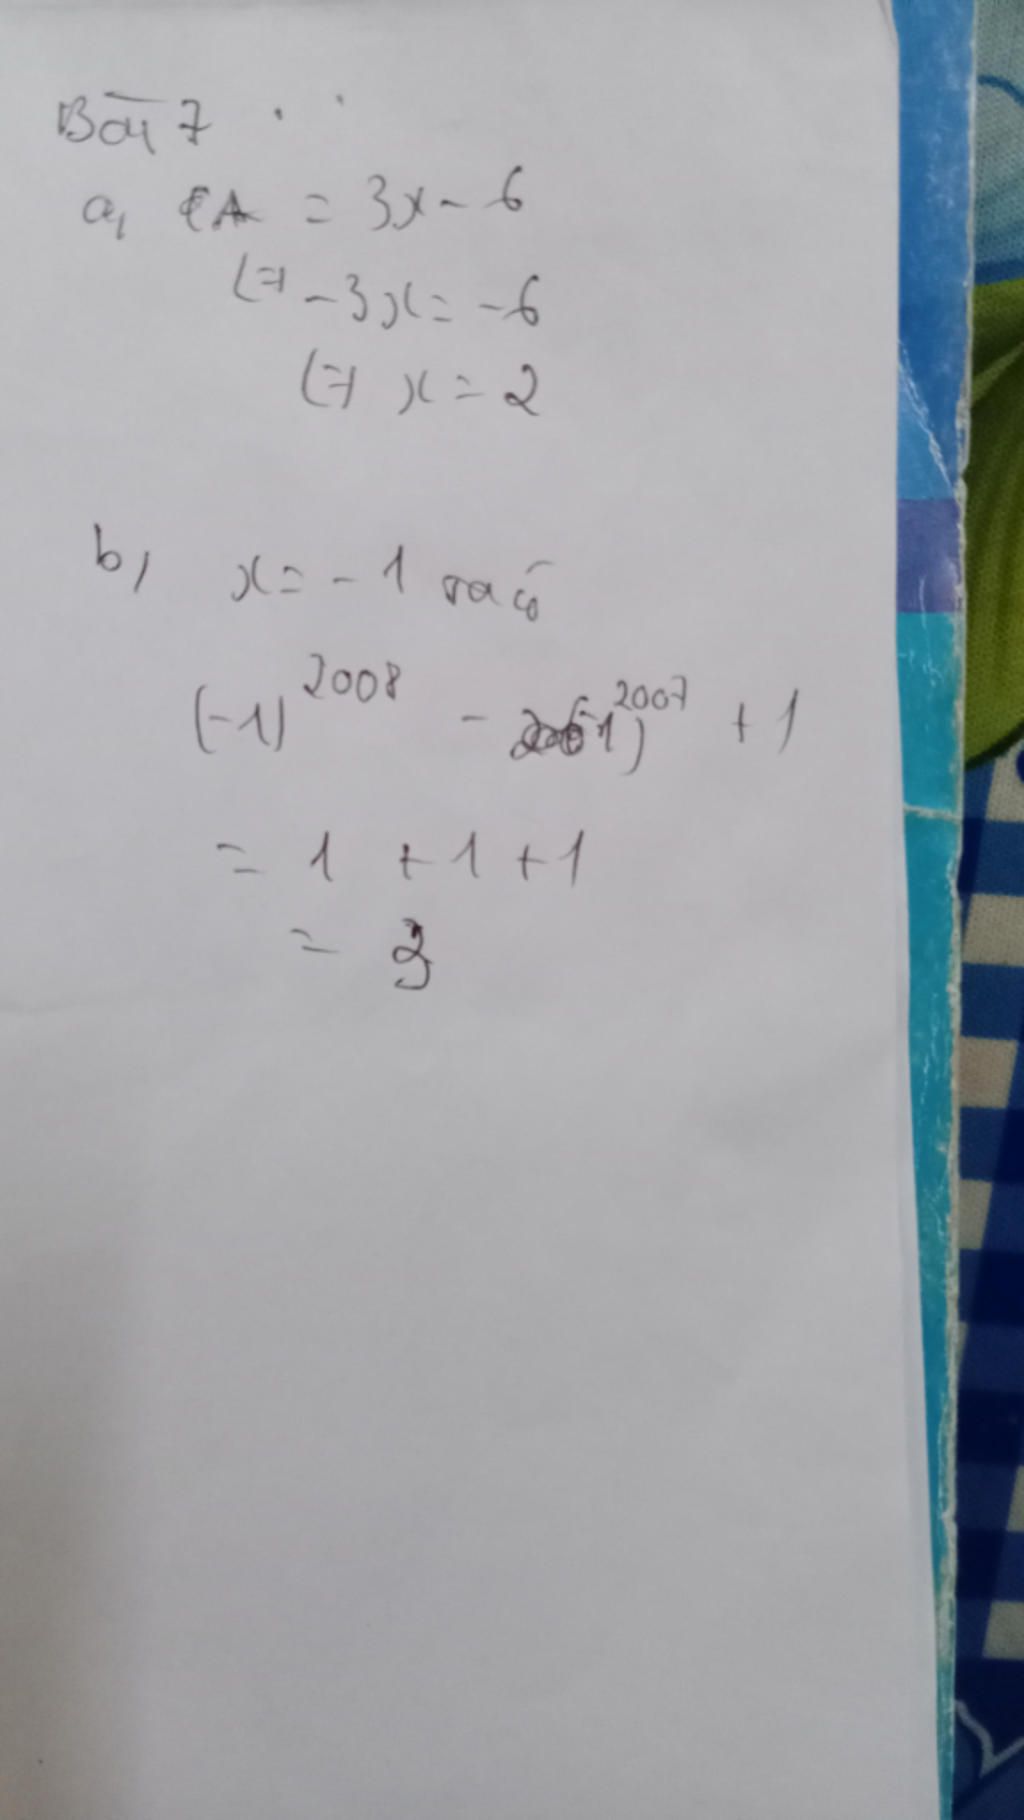 Bài 7
a, A = 3x - 6
<=> -3x = -6
<=> x = 2
b, x = -1 ta có
(-1)^2008 - (-1)^2007 + 1
= 1 + 1 + 1
= 3